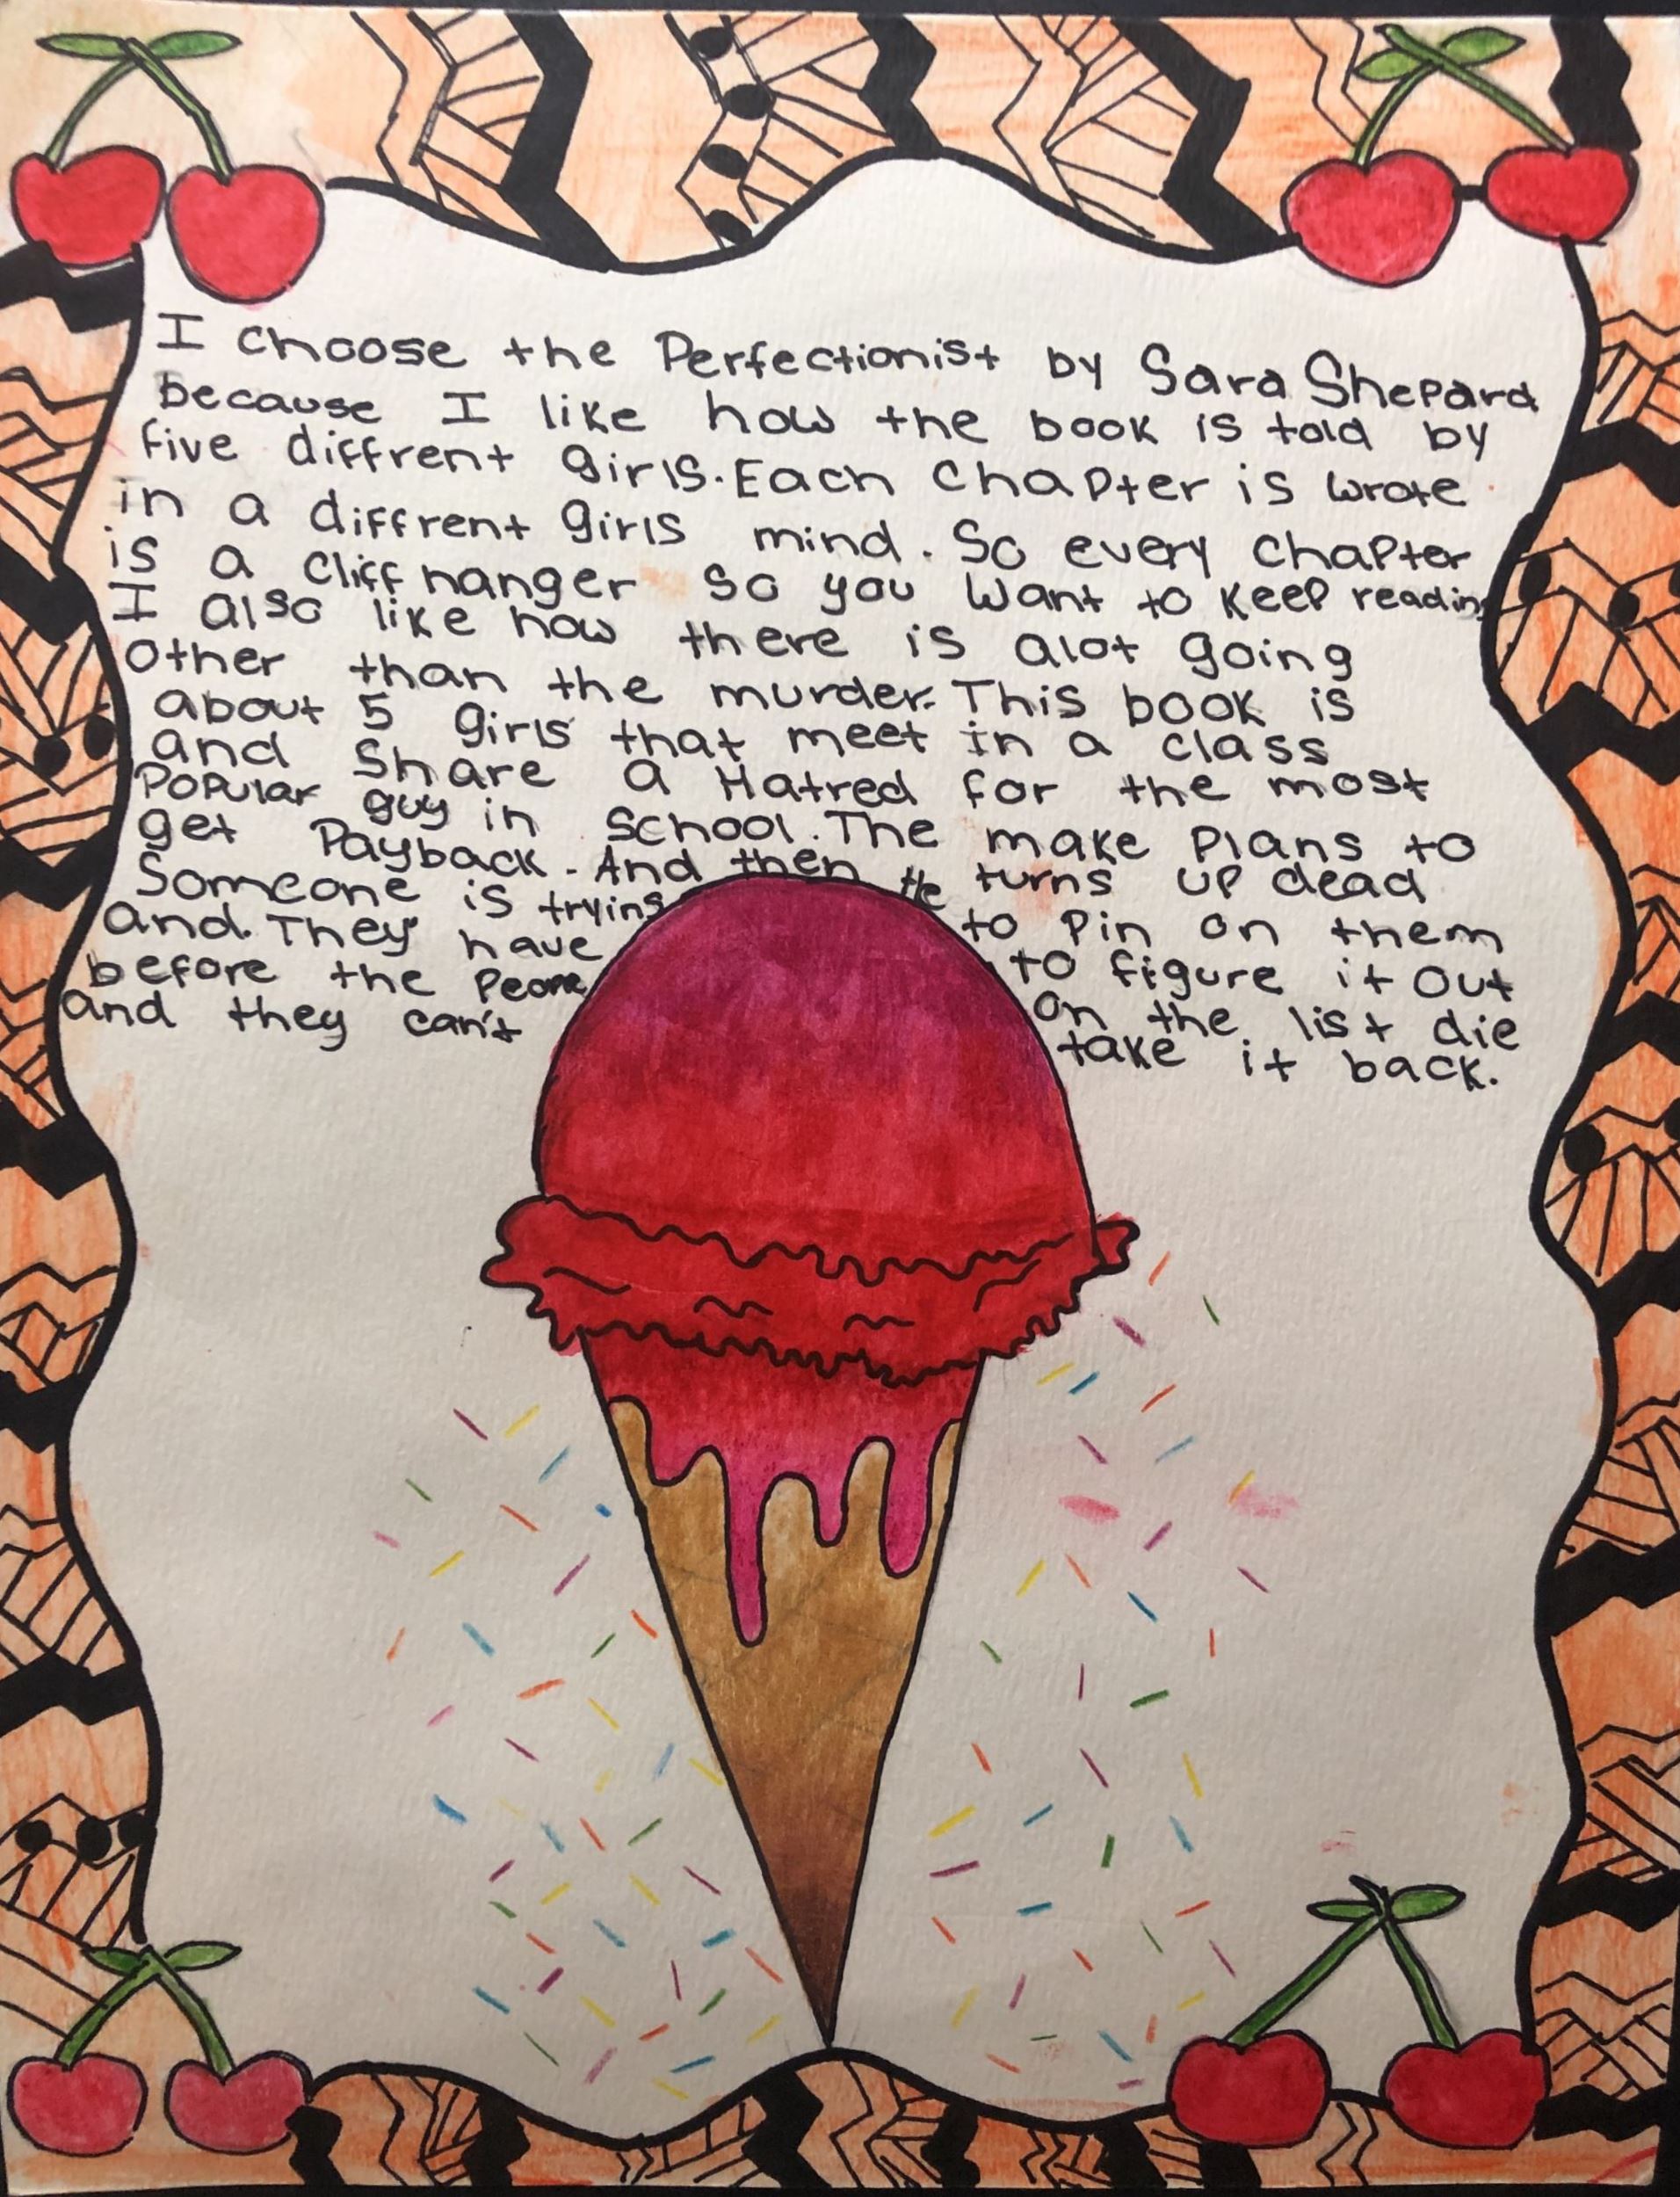 I choose the Perfectionist by Sara Shepard
because I like how the book is told by
five diffrent girls. Each chapter is wrote
in a diffrent girls mind. So every chapter
is a cliff hanger so you want to keep reading
I also like how there is alot going
other than the murder. This book is
about 5 girls that meet in a class
and share a Hatred for the most
Popular guy in school. The make plans to
get Payback. And then He turns up dead
Someone is trying to Pin on them
and. They have to figure it out
before the People on the list die
and they can't take it back.